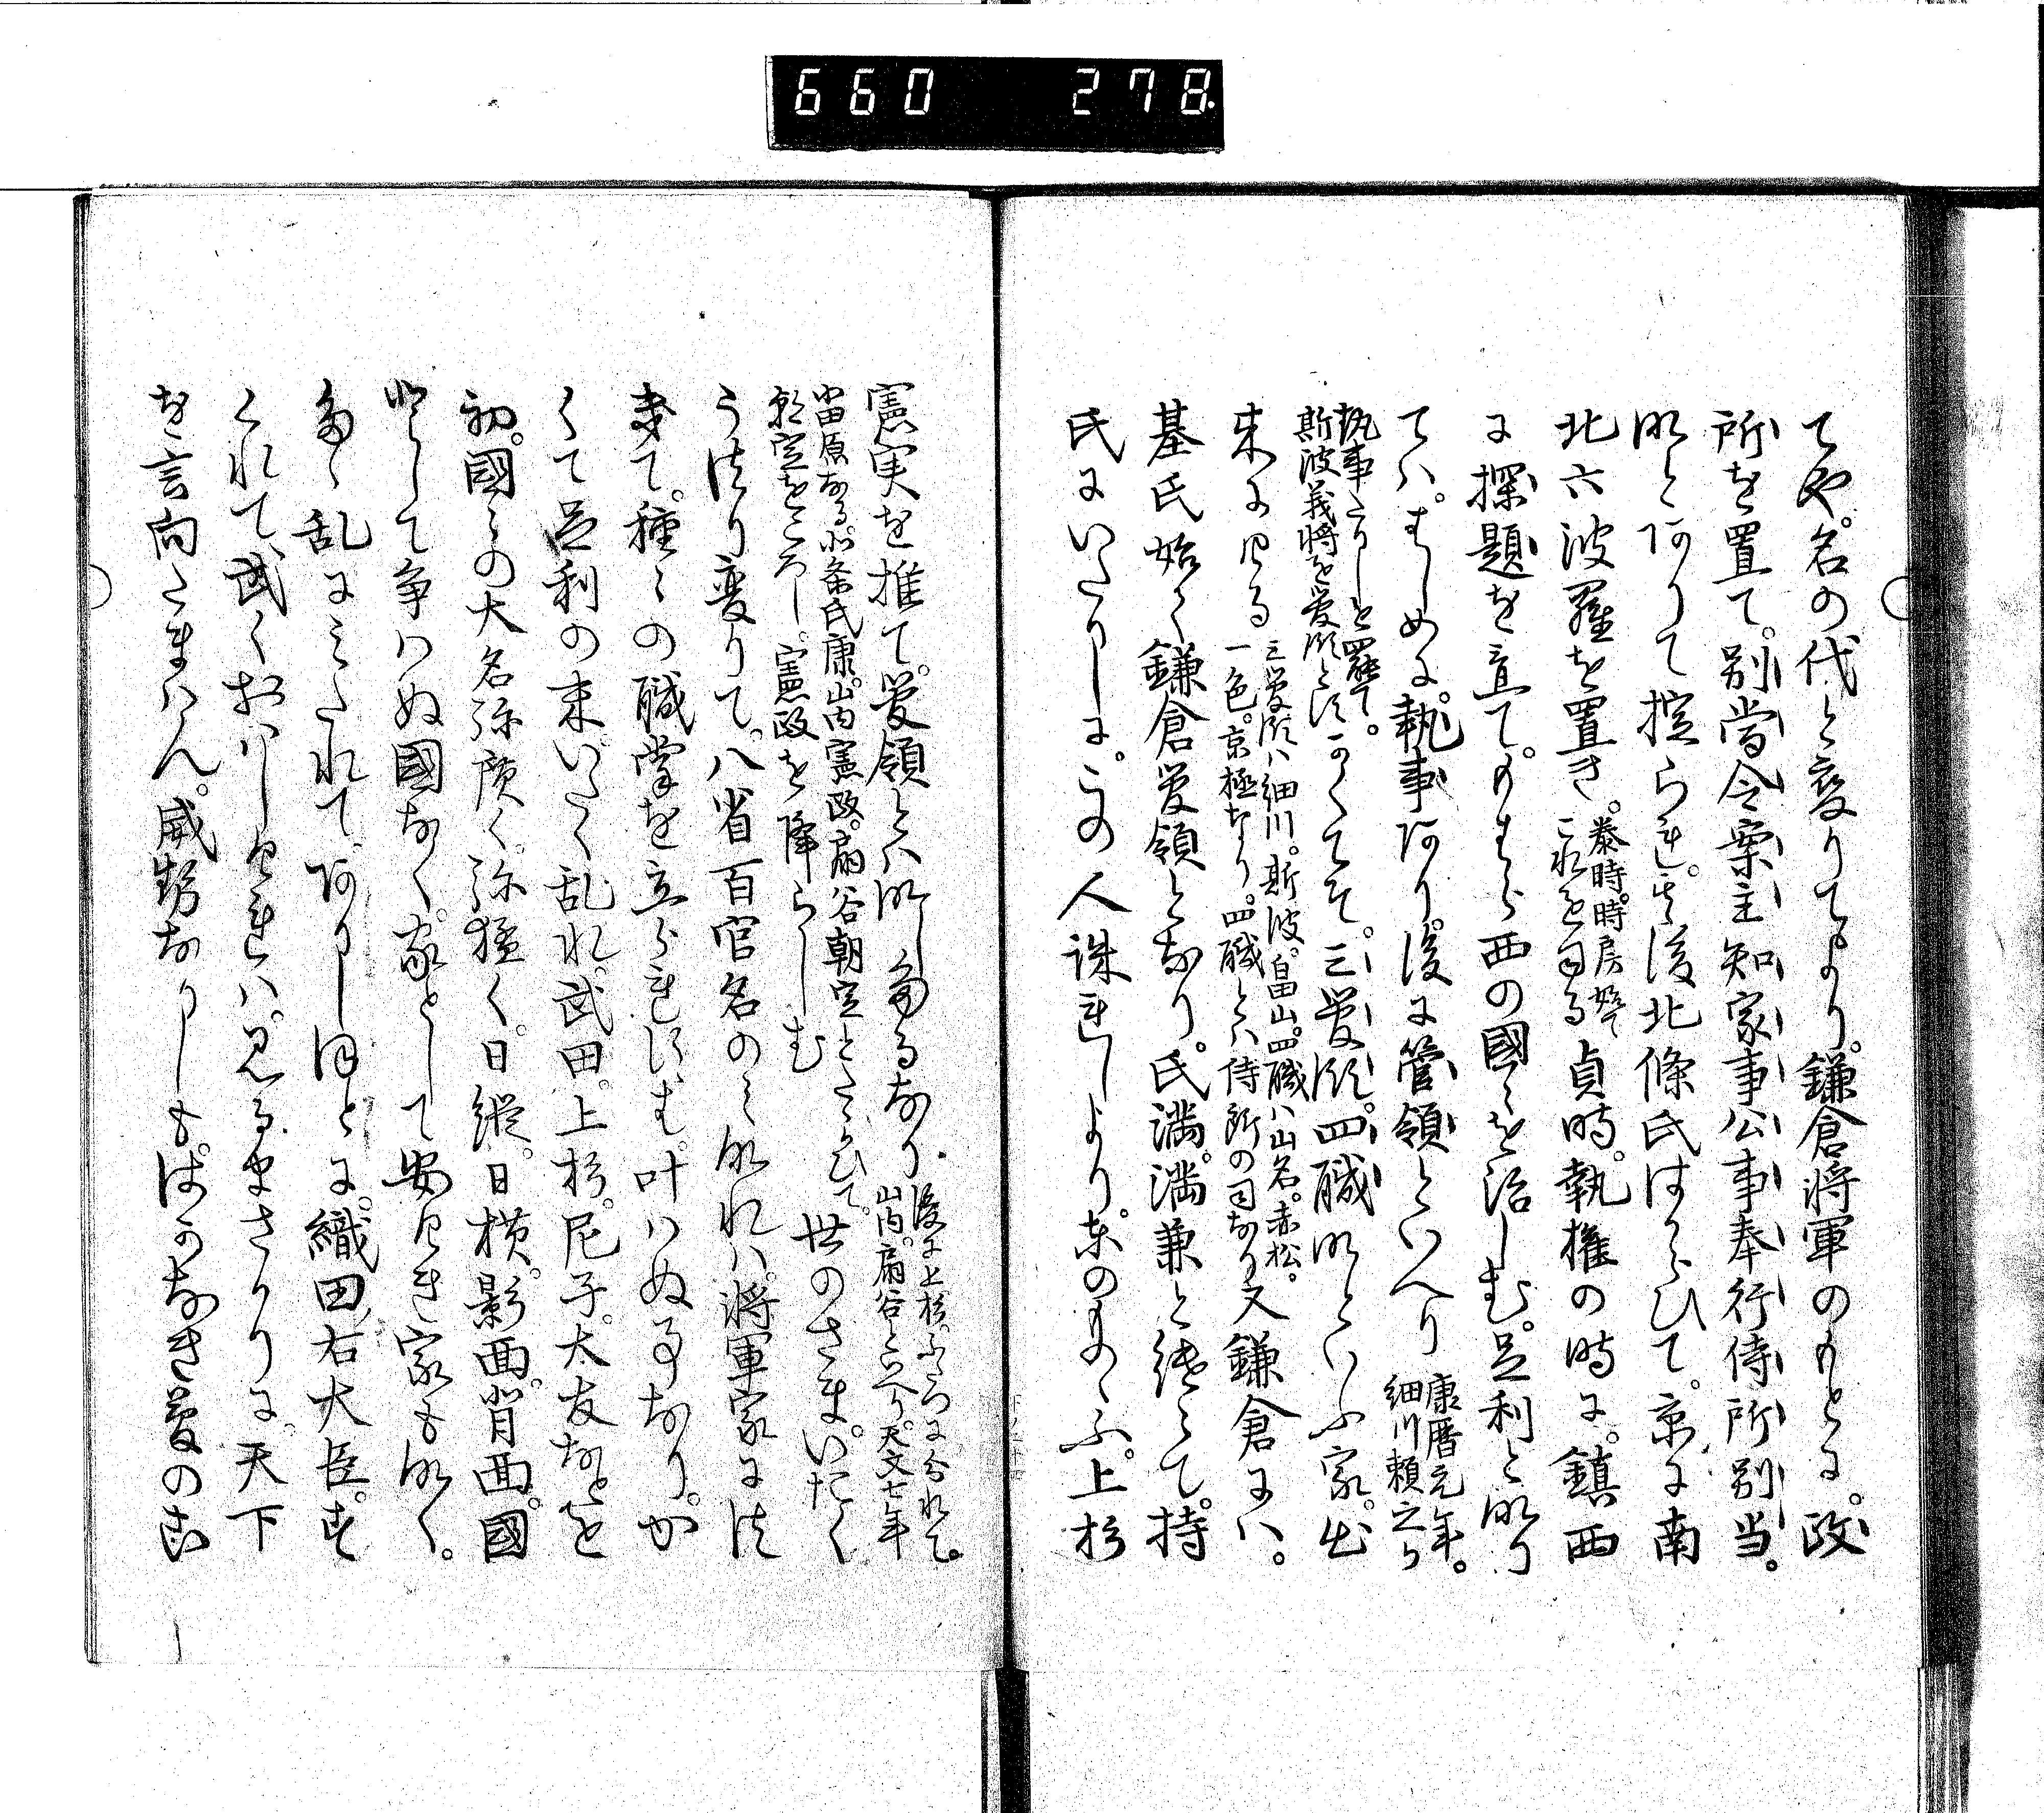 660 278
てや。名の代と変りてより。鎌倉将軍のもとに。政
所を置て。別当令案主知家事公事奉行侍所別当。
などありて掟られき。其後北條氏はからひて。京に南
北六波羅を置き。泰時。時房始て
これを司る貞時。執権の時に。鎮西
に探題を立て。もはら西の國々を治しむ。足利となり
ては。はしめに。執事あり。後に管領といへり康暦元年。
細川頼之ら
執事たりしを罷て。
斯波義将を管領とすかくてそ。三管領。四職などいふ家。出
来にける三管領ハ細川。斯波。畠山。四職ハ山名。赤松。
一色。京極なり。四職とハ侍所の司なり又鎌倉には。
基氏始く鎌倉管領となり。氏満。満兼と継て。持
氏にいたりしに。この人誅れしより。東のものゝふ。上杉
憲実を推て。管領とハなしゝなり後に上杉。ふたつに分れて。
山内。扇谷と云り。天文七年
小田原なる。北条氏康。山内憲政。扇谷朝定とたゝかひて。
朝定をころし。憲政を降らしむ世のさま。いたく
うつり変りて。八省百官名のみなれハ。将軍家にはま
て。種々の職掌を立られすは。叶ハぬ事なり。か
くて足利の末いたく乱れ。武田。上杉。尼子。大友などを
初。國々の大名弥広く弥猛く。日縦。日横。影面。背面。國
として争ハぬ國なく。家として安けき家もなく。
乱にみたれて。ありしほとに。織田右大臣。す
くれて。武くおハしけれハ。見るまさかりに。天下
を言向たまはん。威勢なりしも。はかなき夢のこ